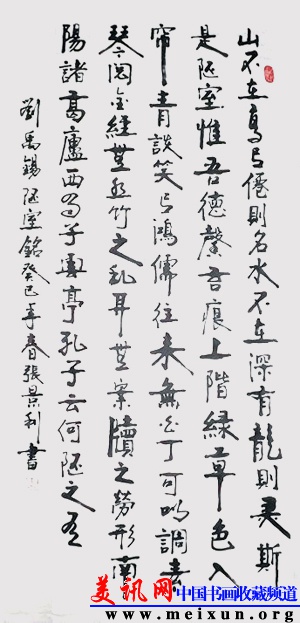 山不在高有僊則名水不在深有龍則灵斯
是陋室惟吾德馨苔痕上階緑草色入
帘青談笑有鴻儒往来無白丁可以調素
琴閲金経無丝竹之乱耳無案牘之勞形南
陽諸葛廬西蜀子雲亭孔子云何陋之有
劉禹錫陋室銘癸巳年春張景利書
美讯网 中国书画收藏频道
www.meixun.org